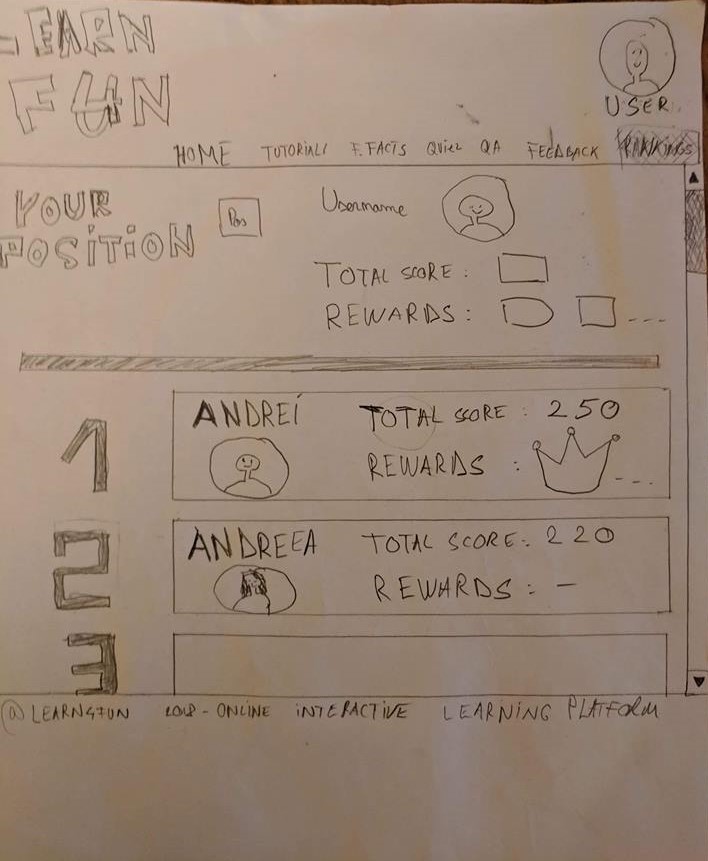 LEARN
F4UN
USER
HOME TUTORIALS F. FACTS QUIEZ QA FEEDBACK RANKINGS
YOUR
POSITION
Pos
Username
TOTAL SCORE :
REWARDS : ---
1
ANDREI TOTAL SCORE : 250
REWARDS : ---
2
ANDREEA TOTAL SCORE : 220
REWARDS : -
3
@LEARN4FUN 2018 - ONLINE INTERACTIVE LEARNING PLATFORM